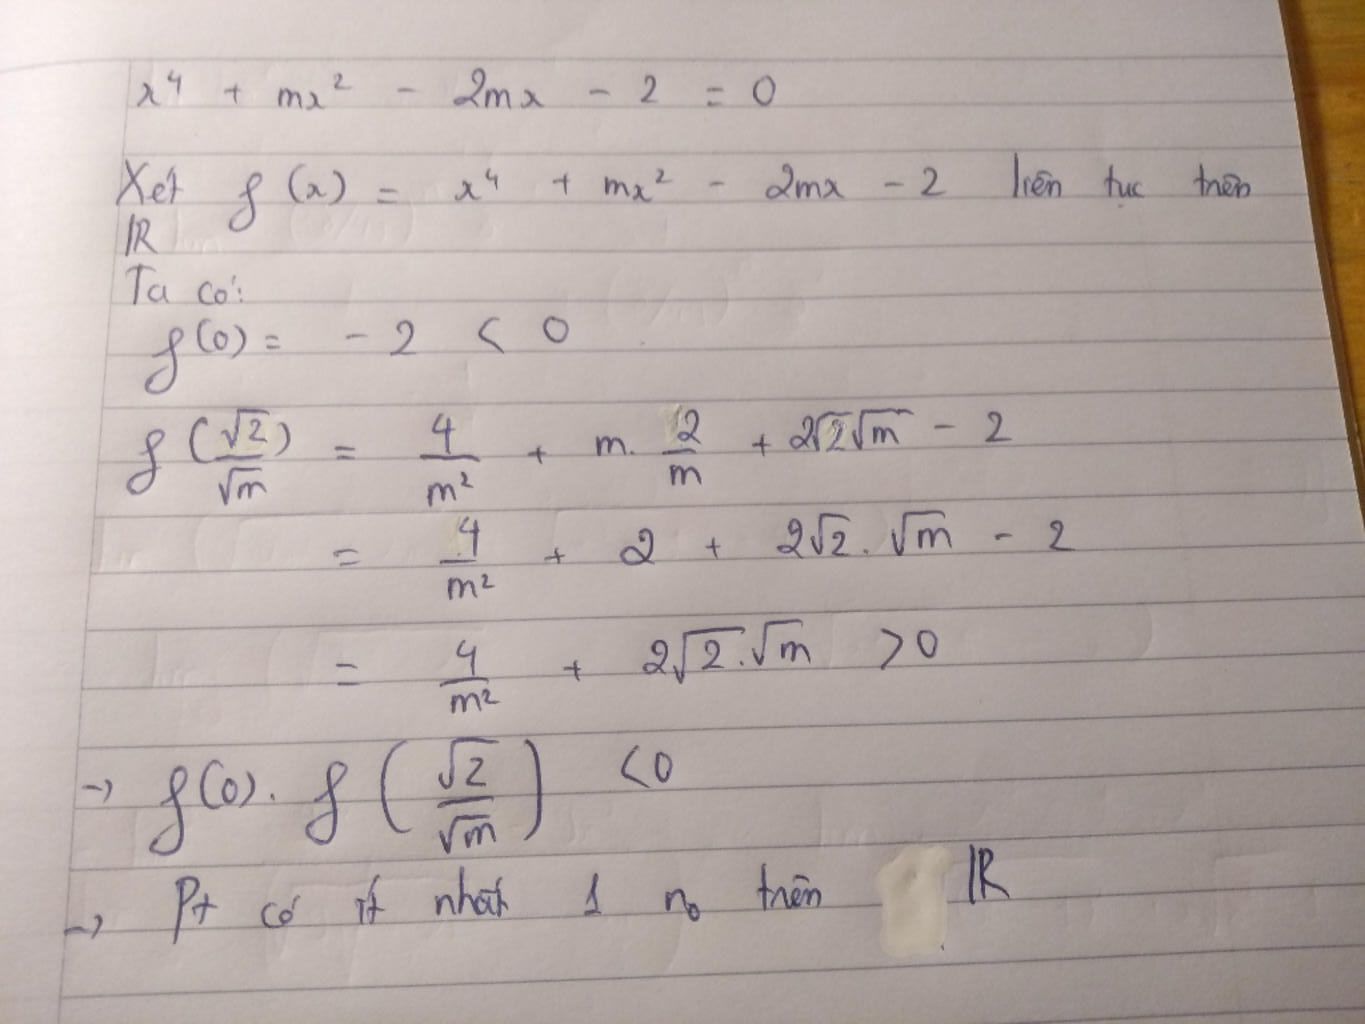 x⁴ + mx² - 2mx - 2 = 0
Xét f(x) = x⁴ + mx² - 2mx - 2 liên tục trên
ℝ
Ta có:
f(0) = -2 < 0
f(√2/√m) = 4/m² + m. 2/m + 2√2√m - 2
= 4/m² + 2 + 2√2.√m - 2
= 4/m² + 2√2.√m > 0
→ f(0). f(√2/√m) < 0
→ Pt có ít nhất 1 no trên ℝ